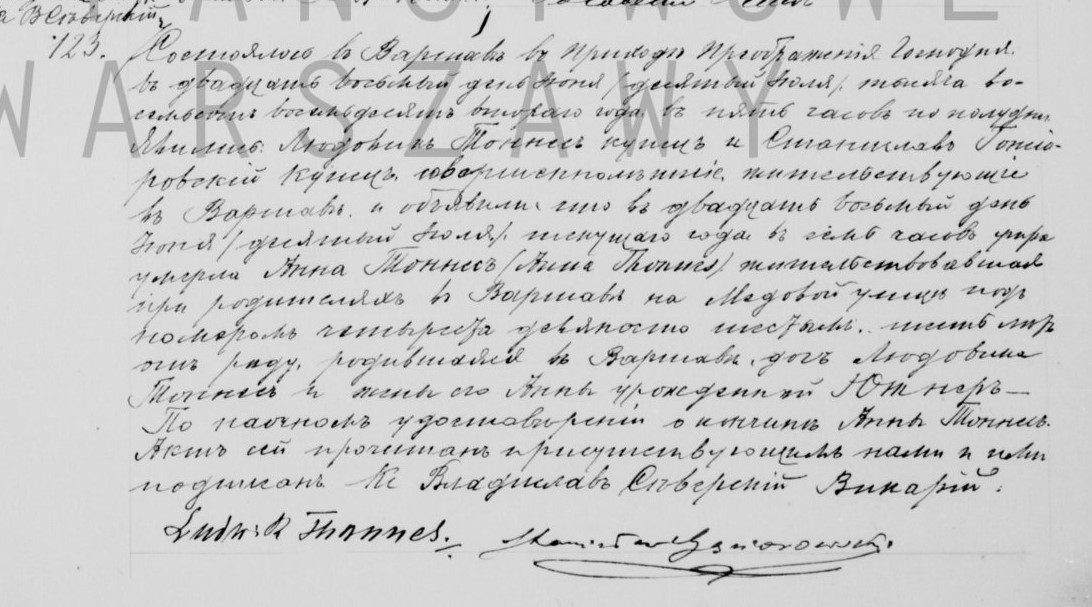 В Сѣверскій
WARSZAWY
123. Состоялось въ Варшавѣ въ приходѣ Преображенія Господня.
въ двадцать восьмый день Іюня /десятый Іюля/. тысяча во-
семьсотъ восемьдесятъ втораго года въ пять часовъ по полудни.
Явились. Людовикъ Тоннесъ купецъ и Станиславъ Гонсіо-
ровскій купецъ. совершеннолѣтніе. жительствующіе
въ Варшавѣ. и объявили. что въ двадцать восьмый день
Іюня /десятый Іюля/. текущаго года въ семь часовъ утра
умерла Анна Тоннесъ /Anna Thonnes/ жительствовавшая
при родителяхъ въ Варшавѣ на Медовой улицѣ подъ
номеромъ четыреста девяносто шестымъ.
отъ роду, родившаяся въ Варшавѣ. дочь Людовика
Тоннесъ и жены его Анны урожденной Ютнеръ—
По наочномъ удостовѣреніи о кончинѣ Анны Тоннесъ.
Актъ сей прочитанъ присутствующимъ нами и ими
подписанъ Кс Владиславъ Сѣверскій Викарій.
Ludwik Thonnes. Stanisław Gąsiorowski.